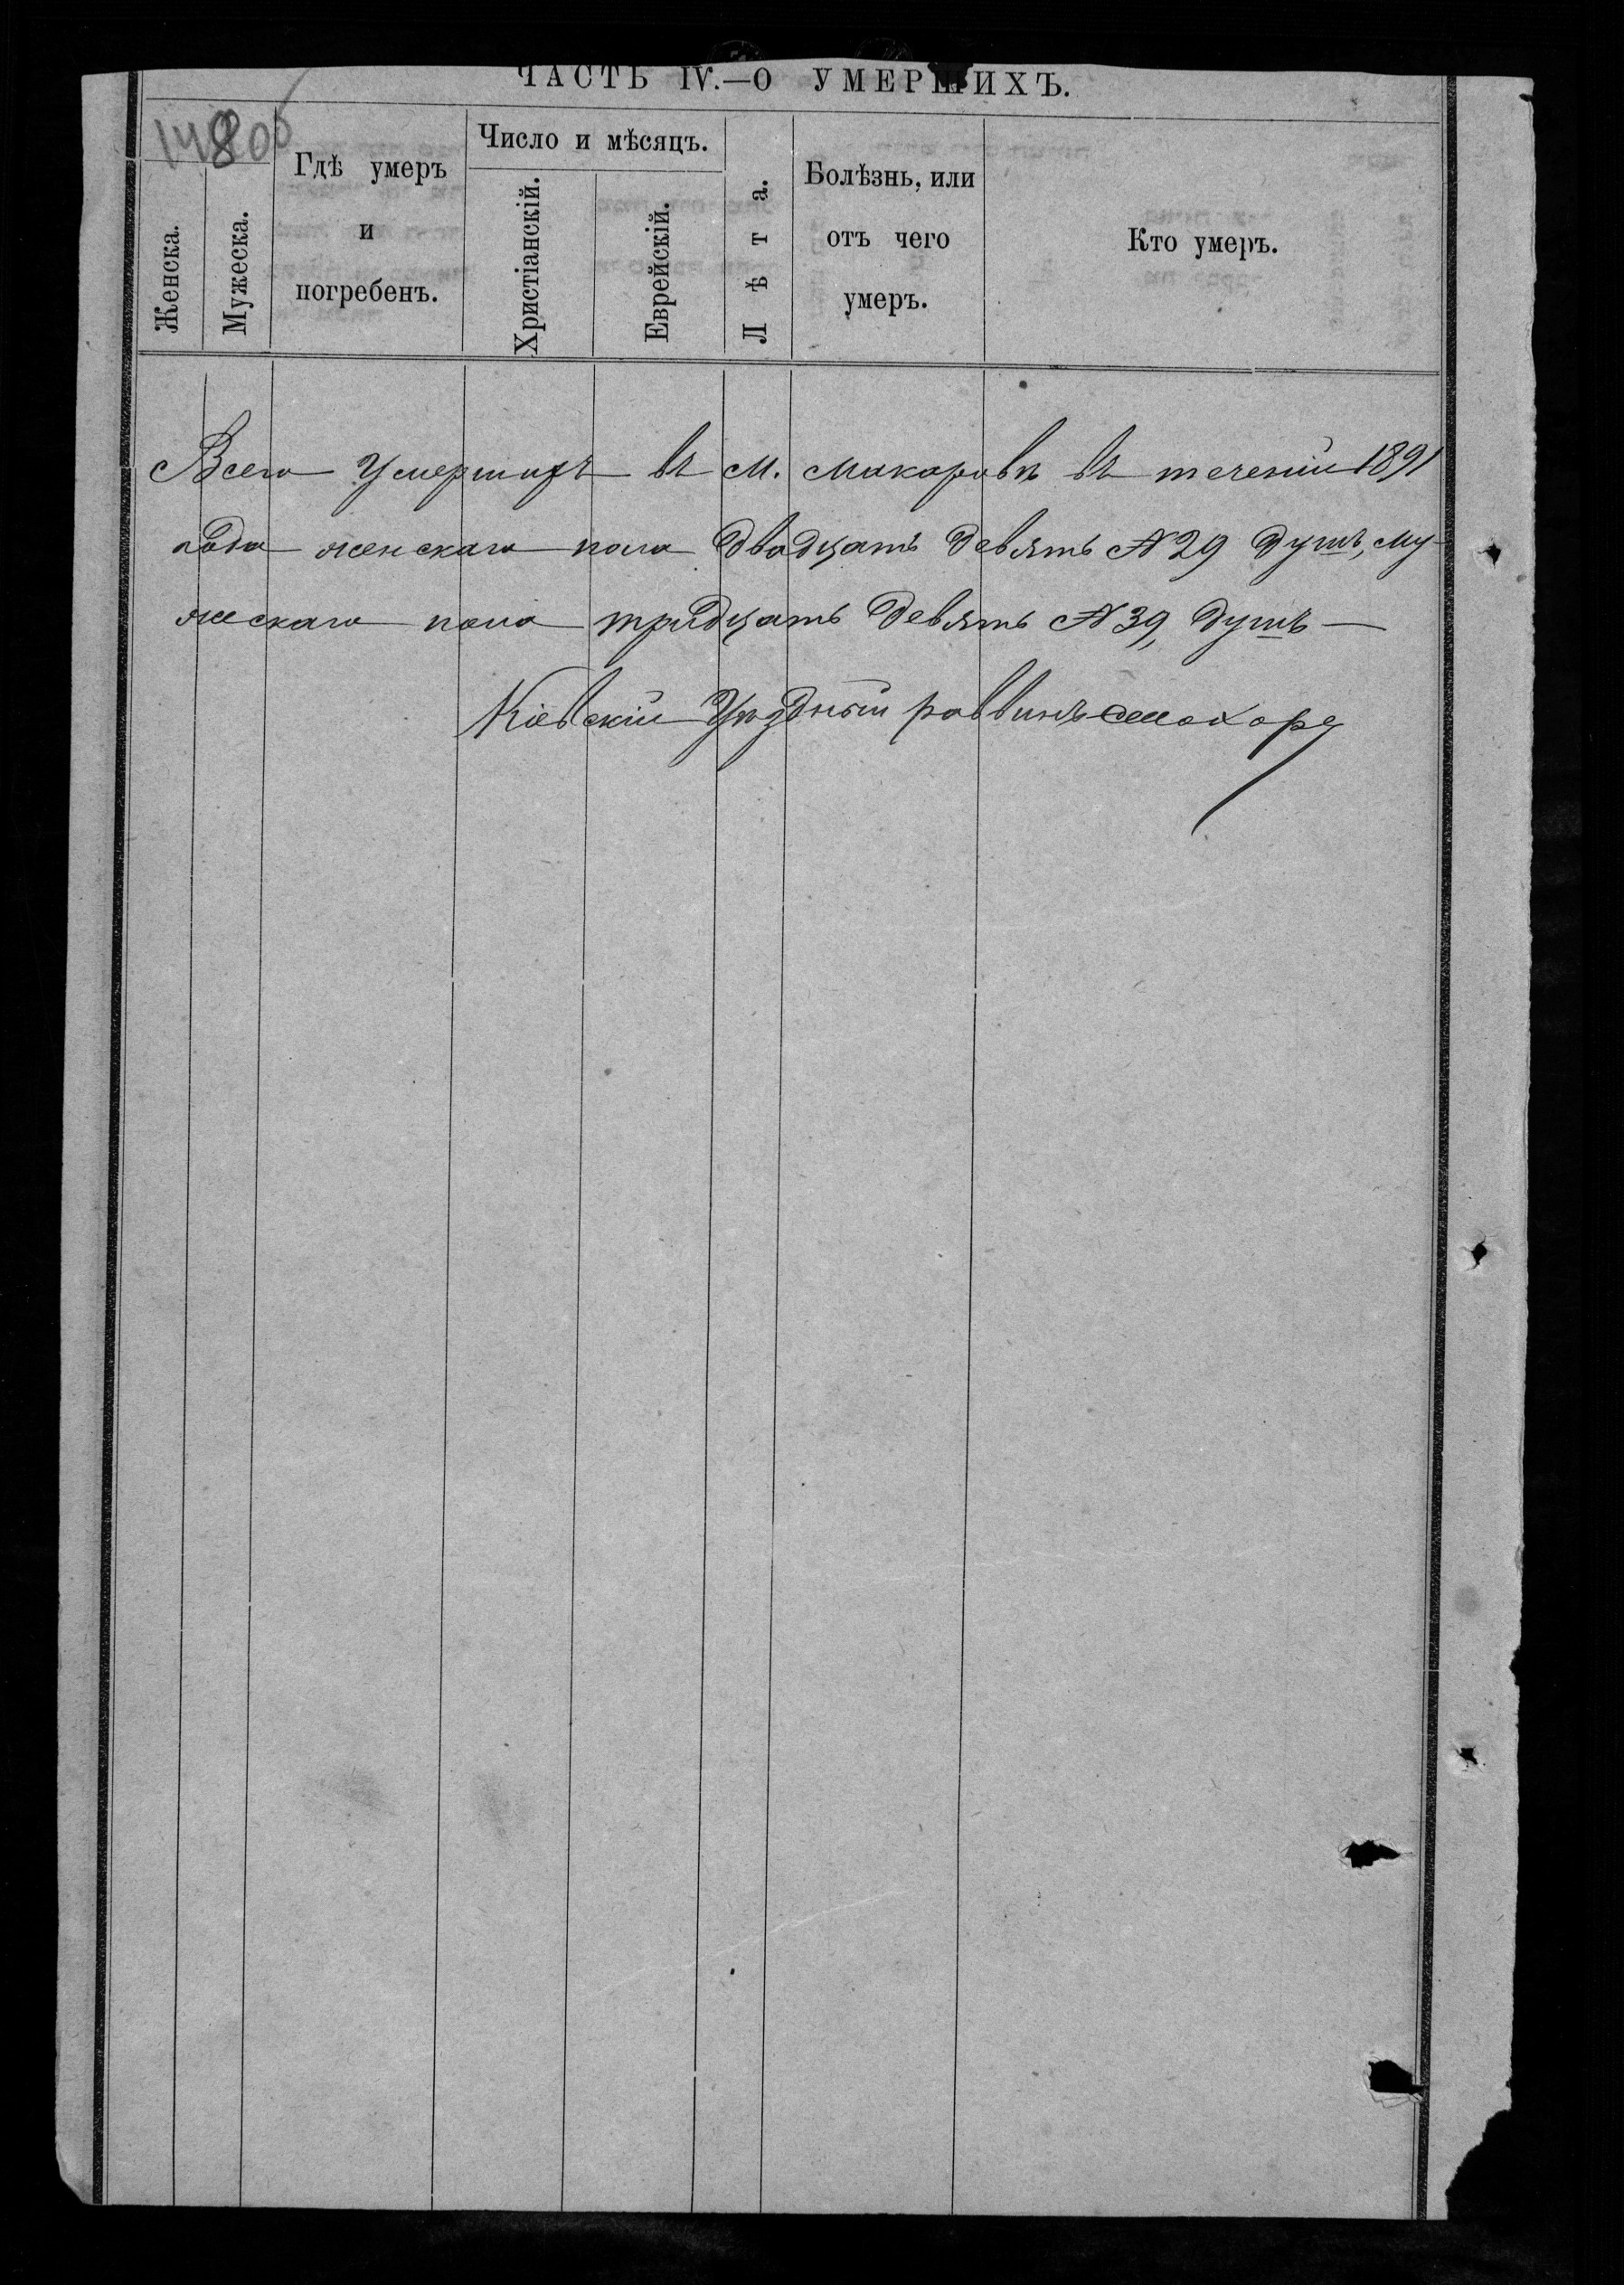 ЧАСТЬ IV.—О УМЕРШИХЪ.
Женска.
Мужеска.
Гдѣ умеръ
и
погребенъ.
Число и мѣсяцъ.
Христіанскій.
Еврейскій.
Лѣта.
Болѣзнь, или
отъ чего
умеръ.
Кто умеръ.
Всего Умершихъ въ М. Макаровѣ въ теченіи 1891
года женскаго пола двадцать девять № 29 душъ, му-
жескаго пола тридцать девять № 39, душъ —
Кіевскій Уѣздный раввинъ